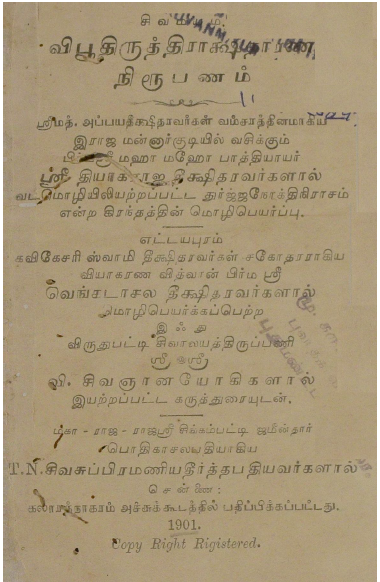 சிவமயம்.
விபூதிருத்திராக்ஷதாரண
நிரூபணம்
ஸ்ரீமத். அப்பயதீக்ஷிதரவர்கள் வம்சாத்தீனமாகிய
இராஜ மன்னார்குடியில் வசிக்கும்
ஸ்ரீ மஹா மஹோ பாத்தியாயர்
ஸ்ரீ தியாகராஜ தீக்ஷிதரவர்களால்
வடமொழியிலியற்றப்பட்ட துர்ஜநோக்திகிராசம்
என்ற கிரந்தத்தின் மொழிபெயர்ப்பு.
எட்டயபுரம்
கவிகேசரி ஸ்வாமி தீக்ஷிதரவர்கள் சகோதரராகிய
வியாகரண வித்வான் பிர்ம ஸ்ரீ
வெங்கடாசல தீக்ஷிதரவர்களால்
மொழிபெயர்க்கப்பெற்ற
இஃது
விருதுபட்டி சிவாலயத்திருப்பணி
ஸ்ரீ
வி. சிவஞானயோகிகளால்
இயற்றப்பட்ட கருத்துரையுடன்.
மகா - ராஜ - ராஜஸ்ரீ சிங்கம்பட்டி ஜமீன்தார்
பொதிகாசலபதியாகிய
T.N.சிவசுப்பிரமணியதீர்த்தபதியவர்களால்
சென்னை:
கலாரத்நாகரம் அச்சுக்கூடத்தில் பதிப்பிக்கப்பட்டது.
1901.
Copy Right Rigistered.